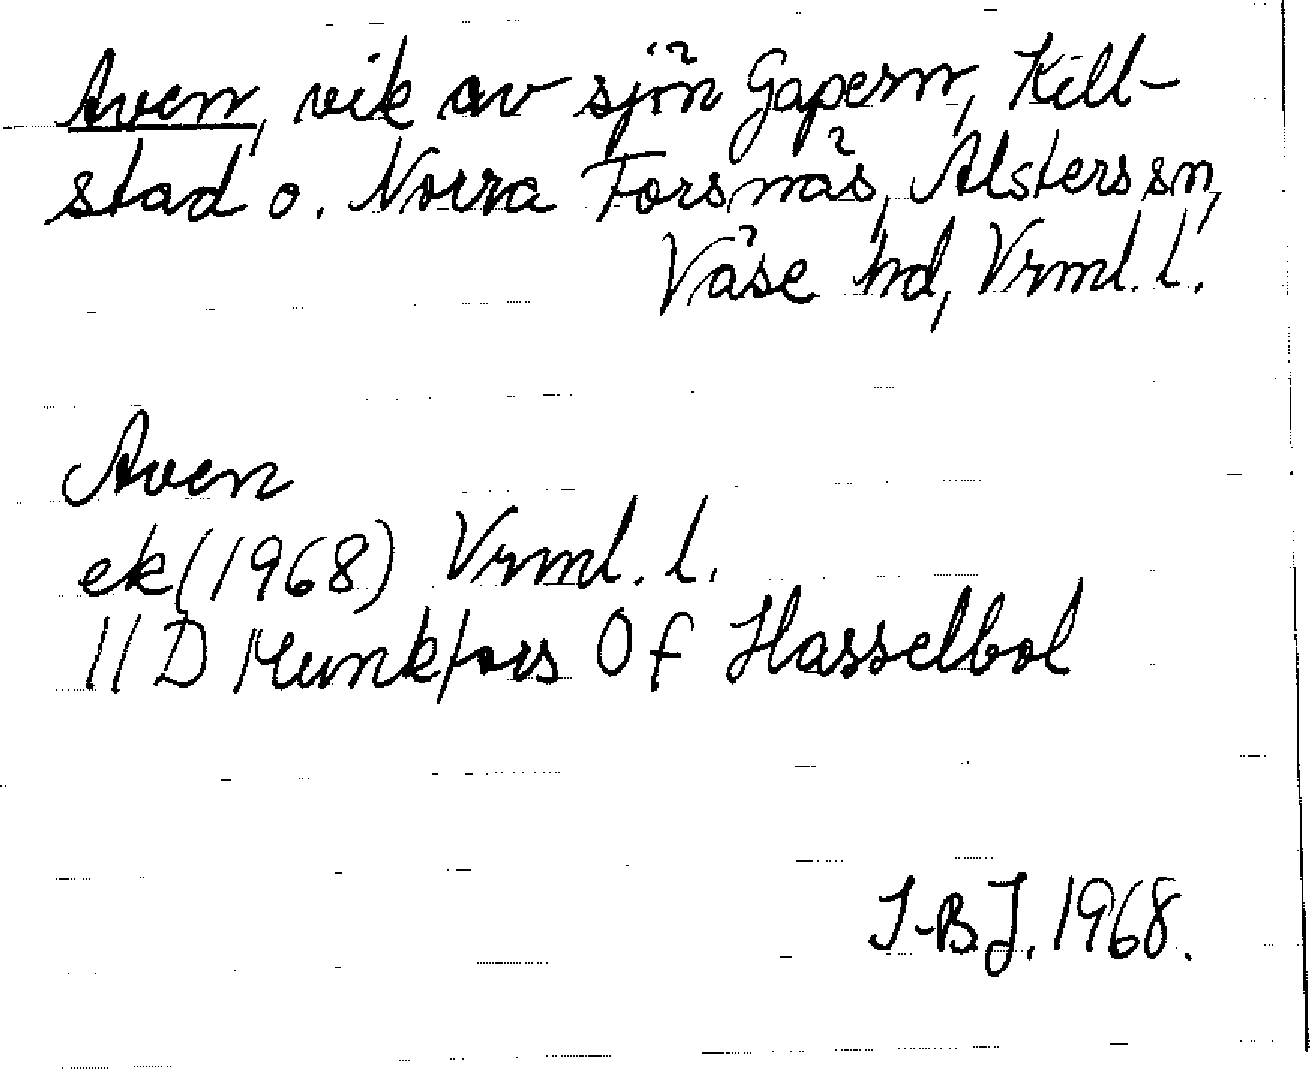 Aven, vik av sjön Gapern, Kill-
stad o. Norra Forsnäs, Alsters sn,
Väse hd, Vrml. l.
Aven
ek (1968) Vrml. l.
11 D Munkfors 0 f Hasselbol
I-BJ. 1968.